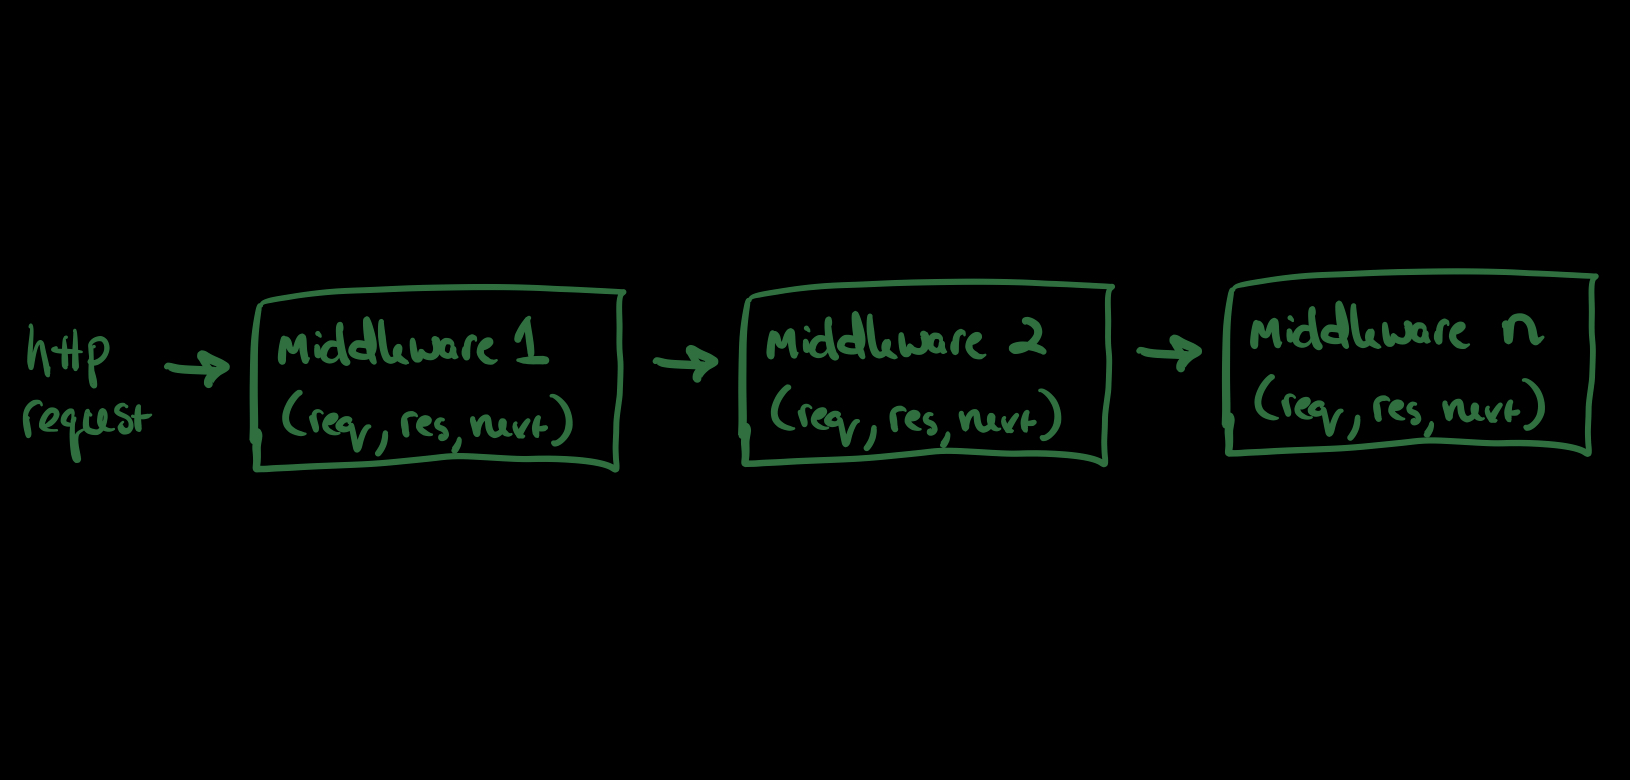 http
request
Middleware 1
(req, res, next)
Middleware 2
(req, res, next)
Middleware n
(req, res, next)